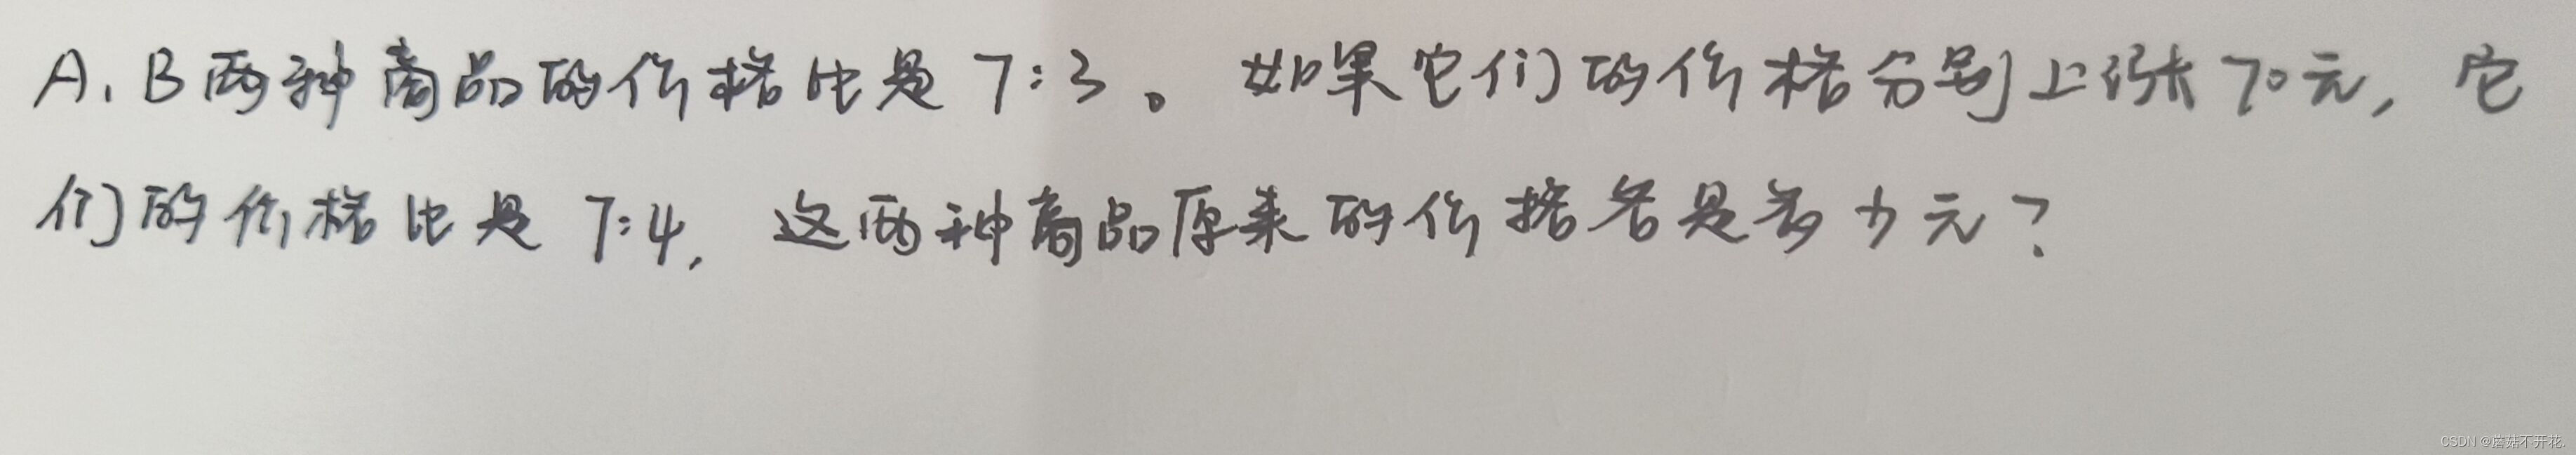 A、B两种商品的价格比是7:3。如果它们的价格分别上涨70元，它
们的价格比是7:4，这两种商品原来的价格各是多少元？
CSDN @蘑菇不开花.